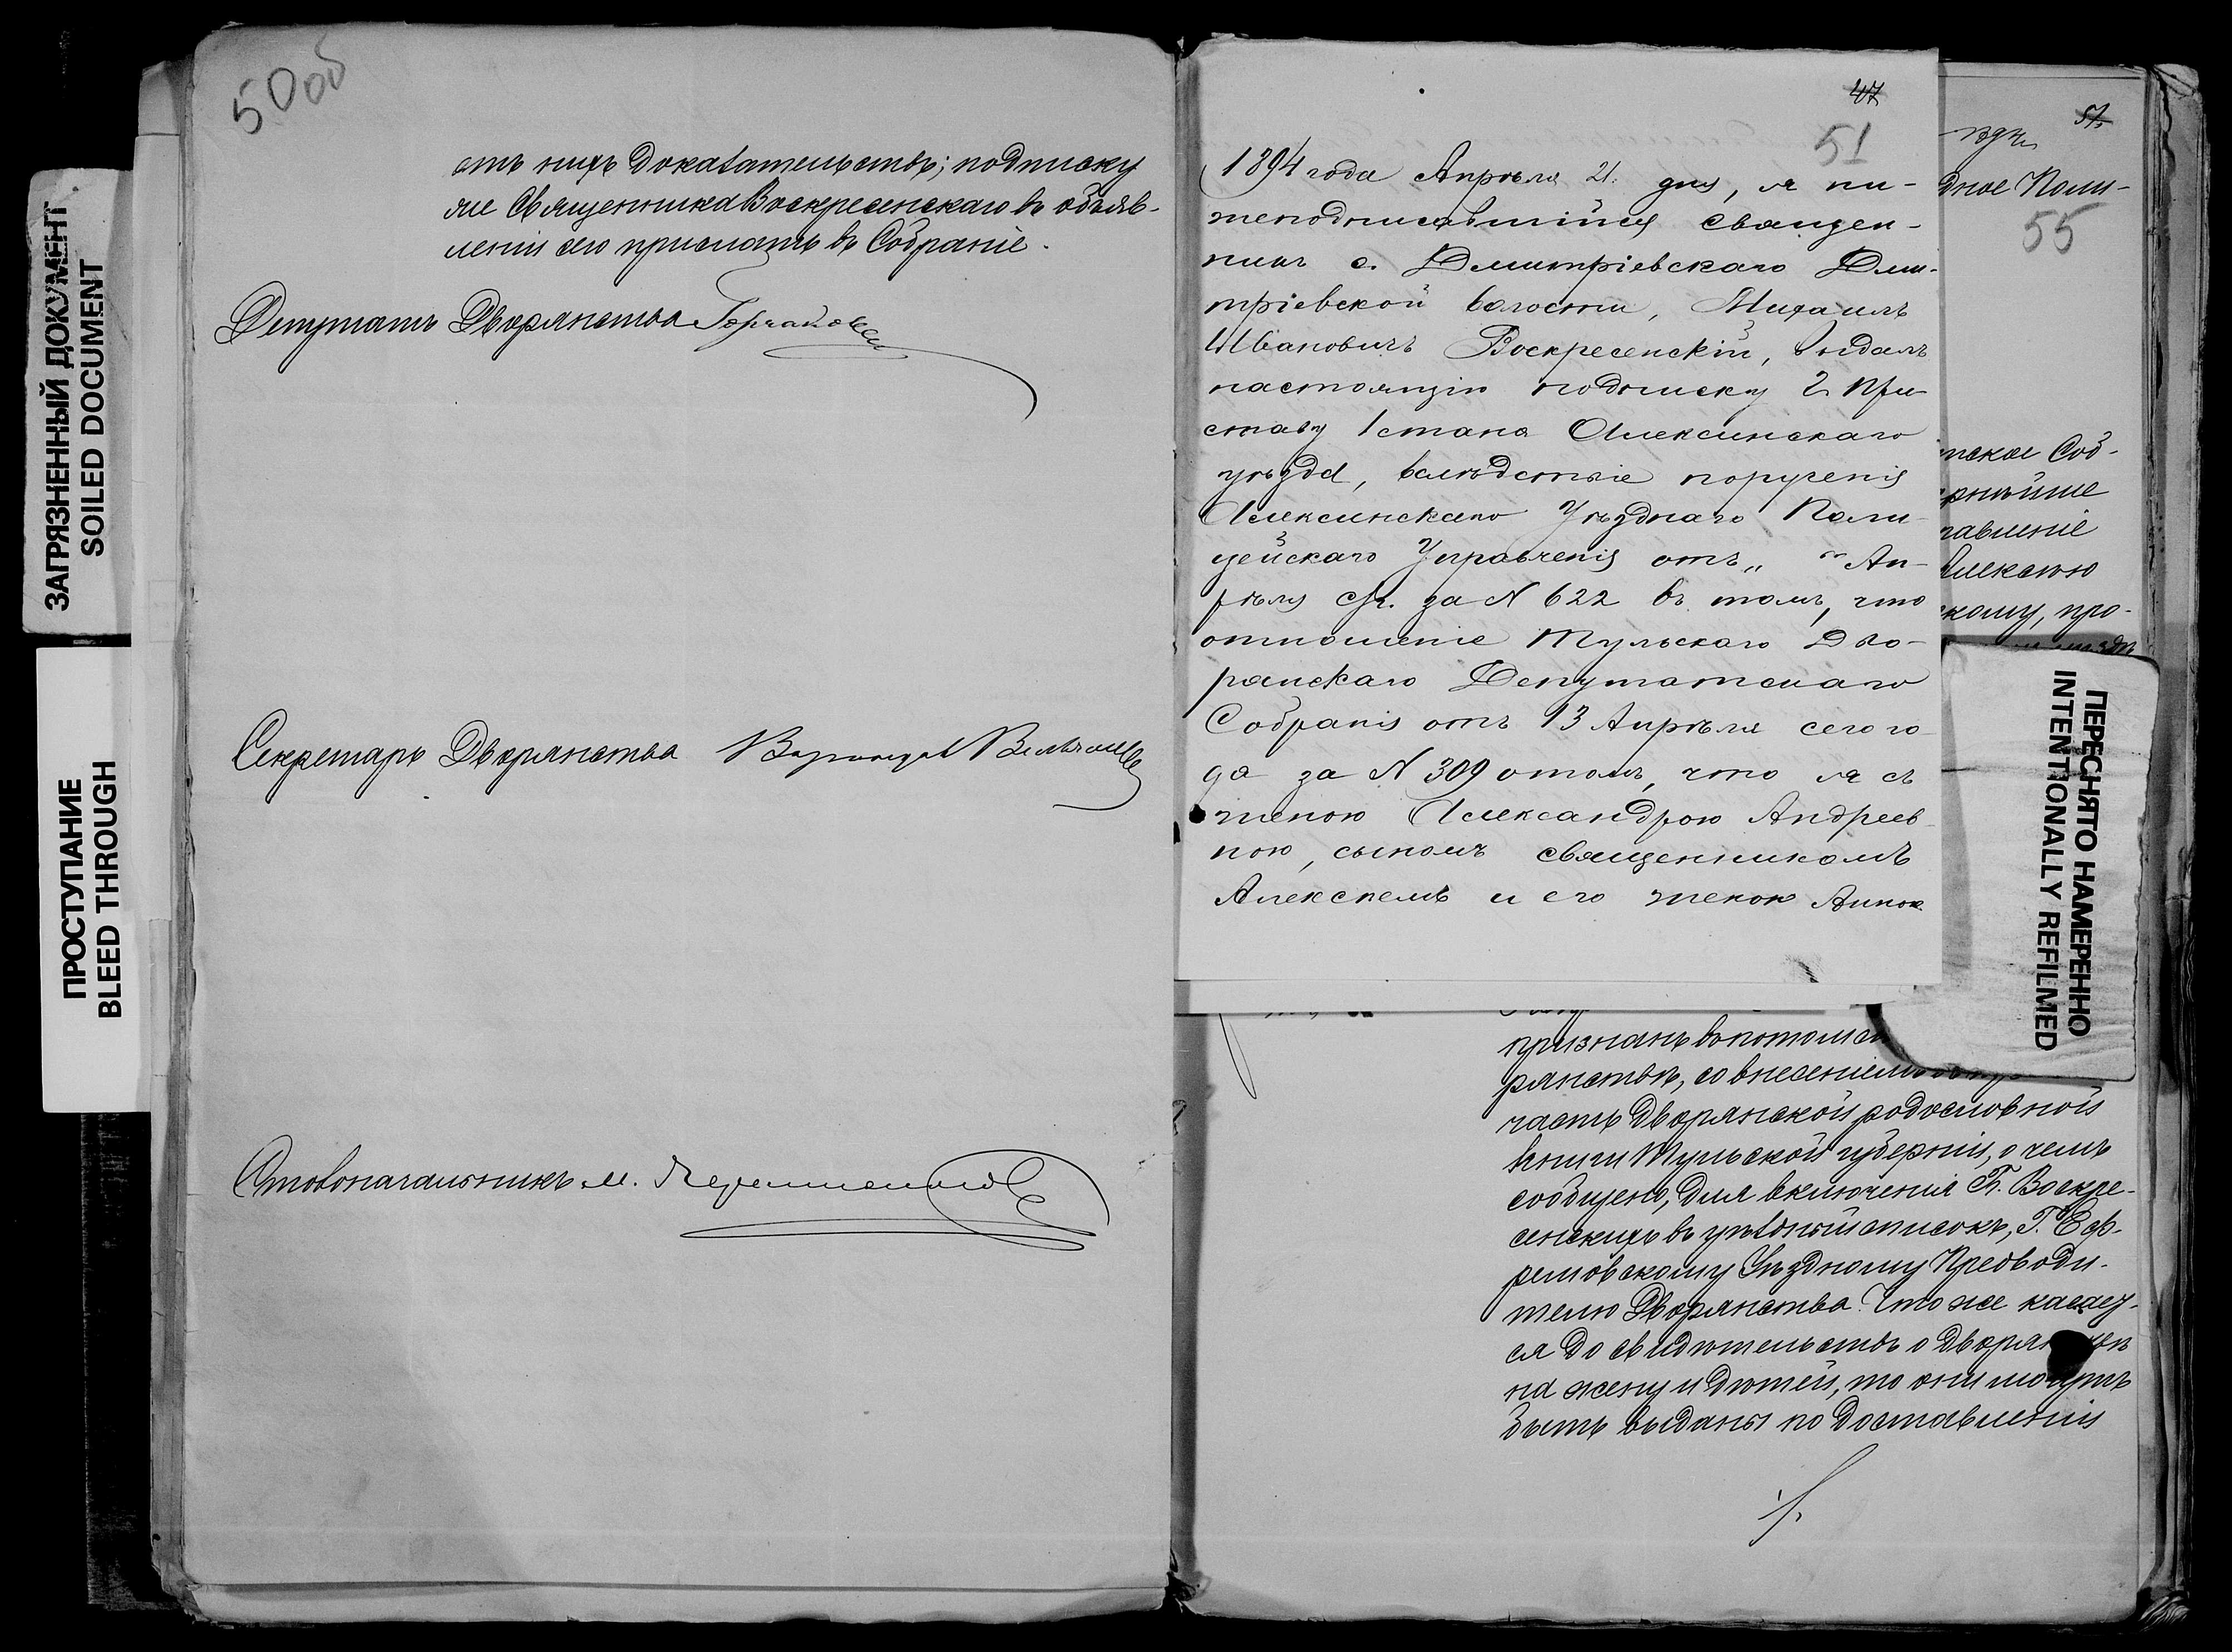 50об
отъ нихъ доказательствъ; подписку
же Священника Воскресенскаго въ объяв-
леніи сего прислать въ Собраніе.
Депутатъ Дворянства
Секретарь Дворянства
Столоначальникъ М.
ЗАГРЯЗНЕННЫЙ ДОКУМЕНТ
SOILED DOCUMENT
ПРОСТУПАНИЕ
BLEED THROUGH
47
51
1894 года Апрѣля 21 дня, я ни-
жеподписавшійся священ-
никъ с. Дмитріевскаго Дми-
тріевской волости, Михаилъ
Ивановичъ Воскресенскій, выдалъ
настоящую подписку Г. При-
ставу 1 стана Алексинскаго
уѣзда, вслѣдствіе порученія
Алексинскаго Уѣзднаго Поли-
цейскаго Управленія отъ „ “ Ап-
рѣля с/г. за N 622 въ томъ, что
отношеніе Тульскаго Дво-
рянскаго Депутатскаго
Собранія отъ 13 Апрѣля сего го-
да за N 309 о томъ, что я съ
женою Александрою Андреев-
ною, сыномъ священникомъ
Алексѣемъ и его женою Анною
51
дное Поли-
55
нское Соб-
рнѣйше
тавленіе
Алексѣю
скому, про-
ПЕРЕСНЯТО НАМЕРЕННО
INTENTIONALLY REFILMED
признанъ въ потомст
рянствѣ, со внесеніемъ
часть Дворянской родословной
книги Тульской губерніи, о чемъ
сообщено, для включенія Г. Воскре-
сенскихъ въ уѣздный списокъ, Г. Еф-
ремовскому Уѣздному Предводи-
телю Дворянства. Что же касает-
ся до свидѣтельствъ о дворянствѣ
на жену и дѣтей, то они могутъ
быть выданы по доставленіи